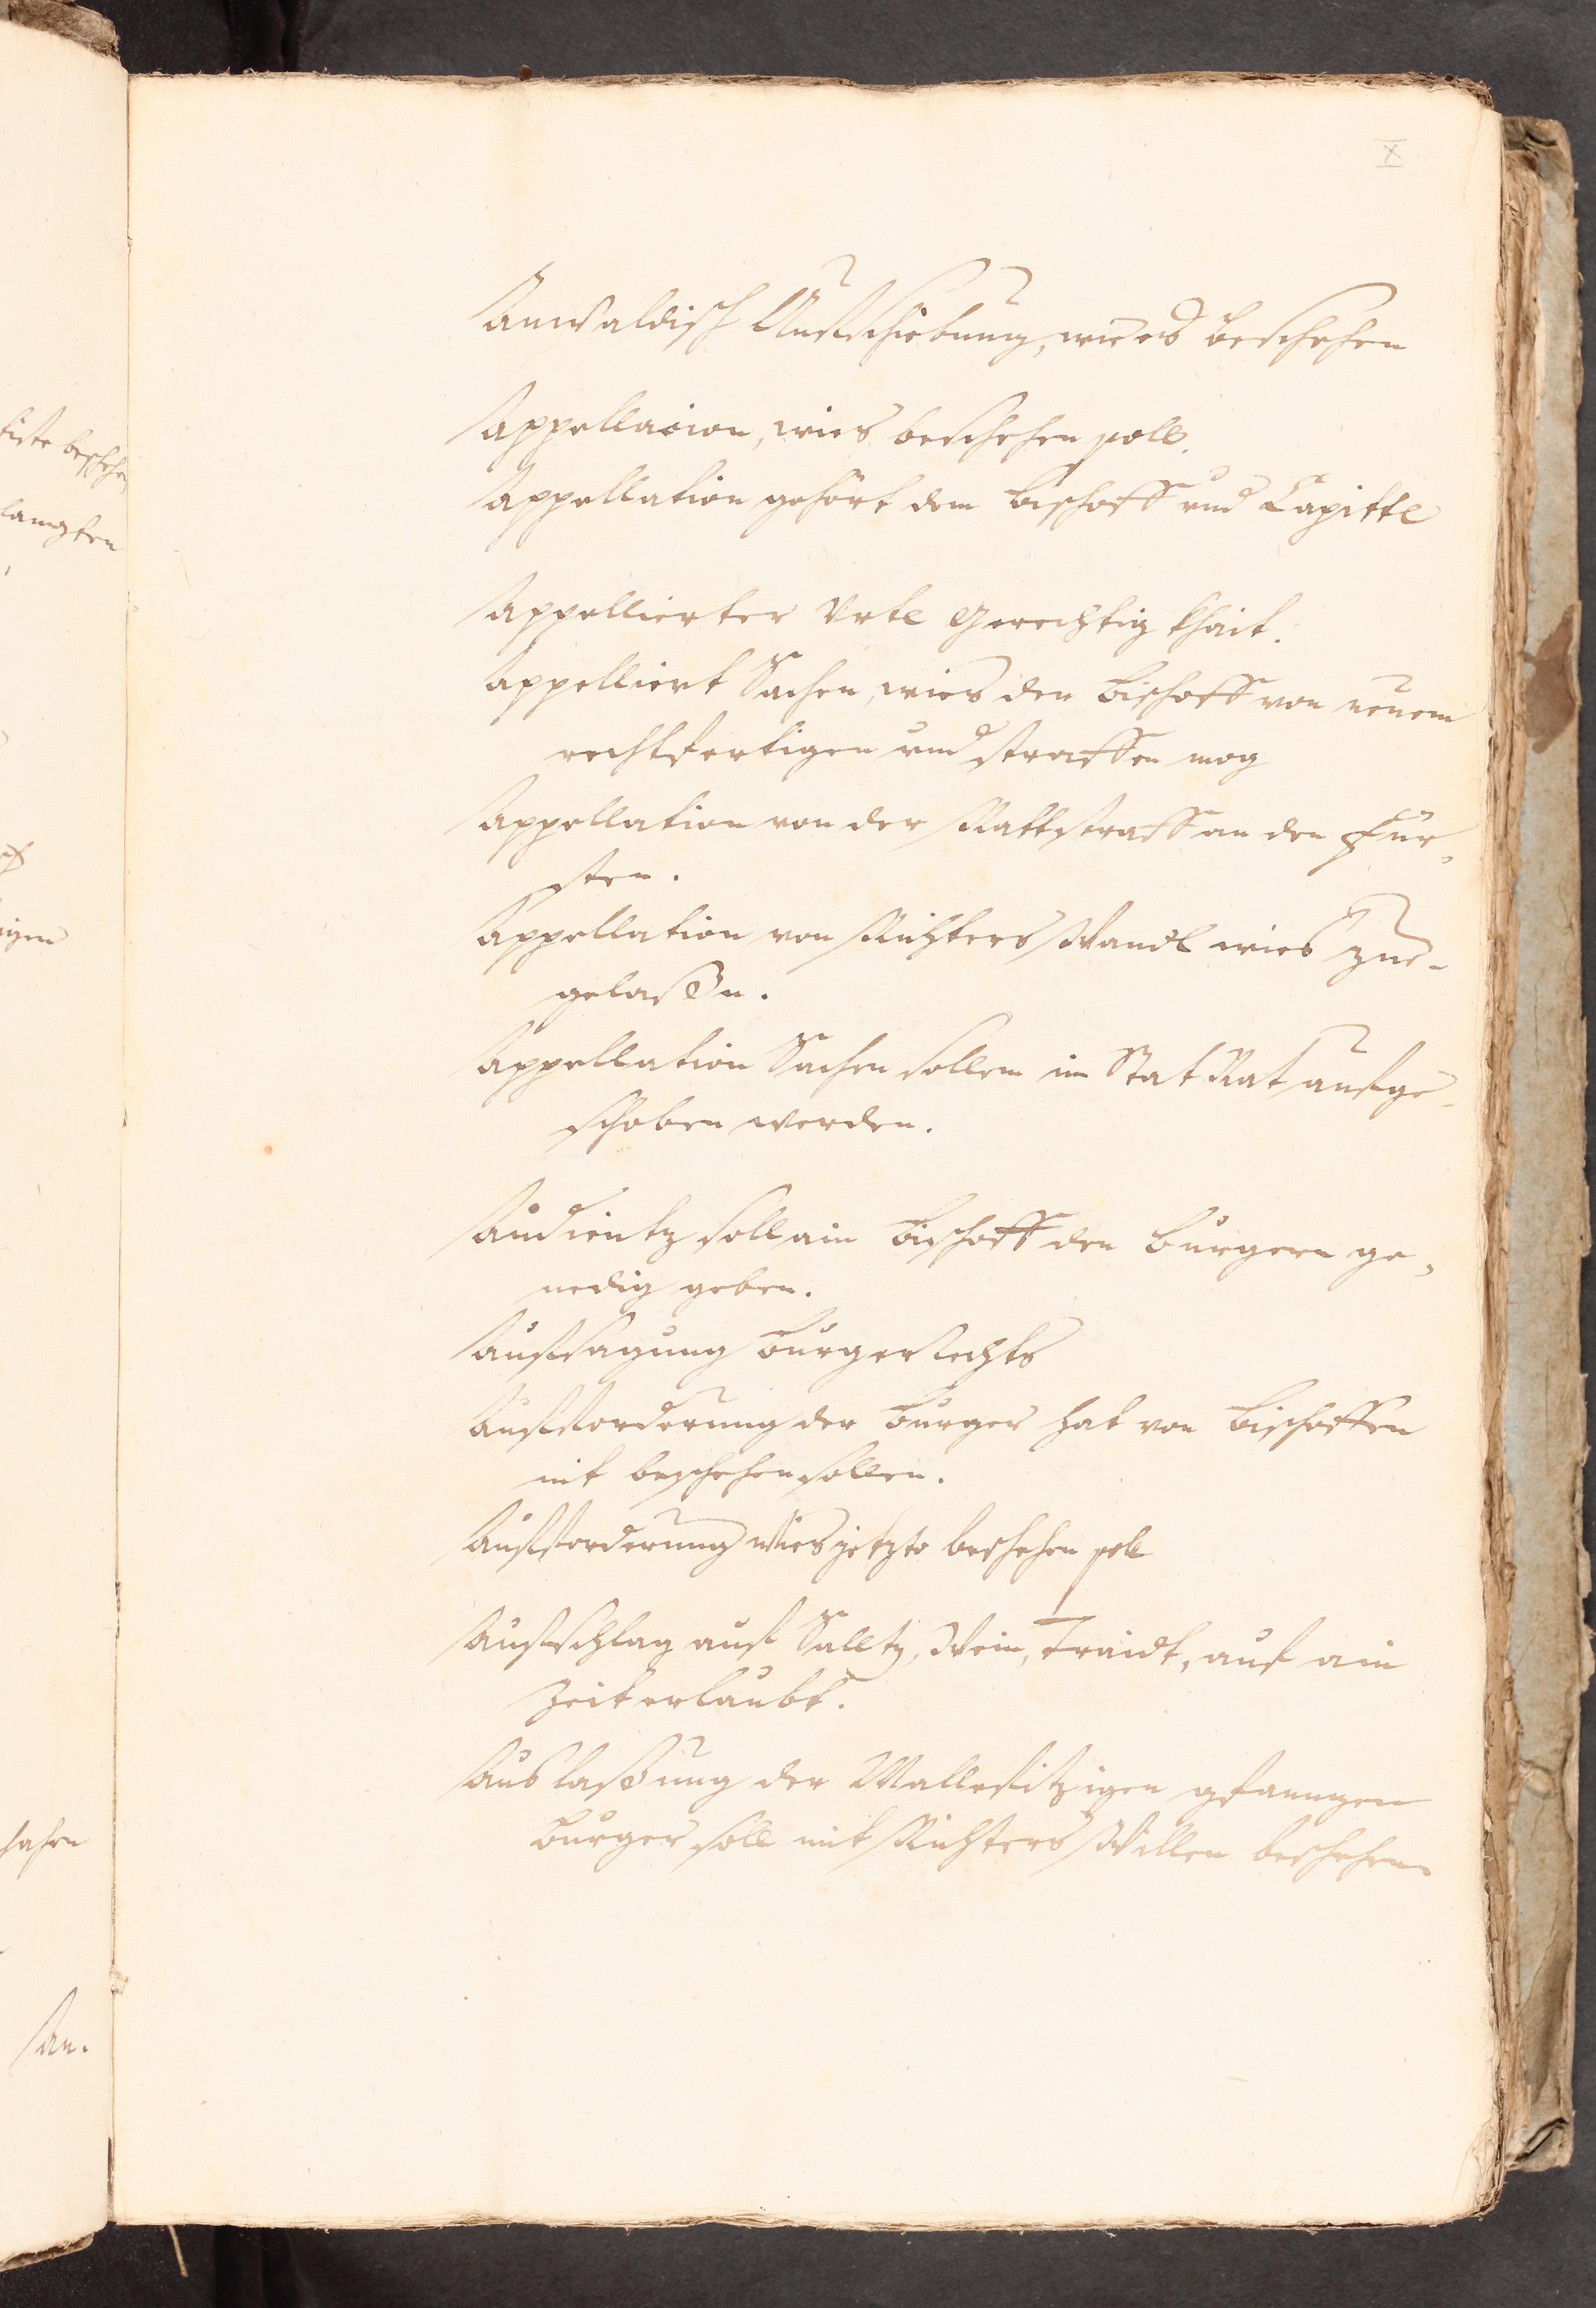 X
Anwaldisch Aufschiebung, wie es beschehen
Appellacion, wies beschehen soll.
Appellation gehört dem Bischoff und Capittl
Appellierter Vrtl Gerechtigkhait.
Appelliert Sachen, wies der Bischoff von neuem
rechtfertigen und straffen mog
Appellation von der Rattstraff an den Für-
sten.
Appellation von Richters Wandl wies zue-
gelaßen.
Appellation Sachen sollen im Stat Rat aufge-
schoben werden.
Audientz soll ain Bischoff den Burgern ge-
nedig geben.
Aufsagung Burgerrechts
Aufforderung der Burger hat von Bischoffen
nit beschehen sollen.
Aufforderung wies jetzto beschehen soll
Aufschlag auf Salltz, Wein, Traidt, auf ain
Zeit erlaubt.
Auslaßung der Mallefitzigen gefanngen
Burger soll mit Richters Willen beschehen
beschehen
langten
igen
An.